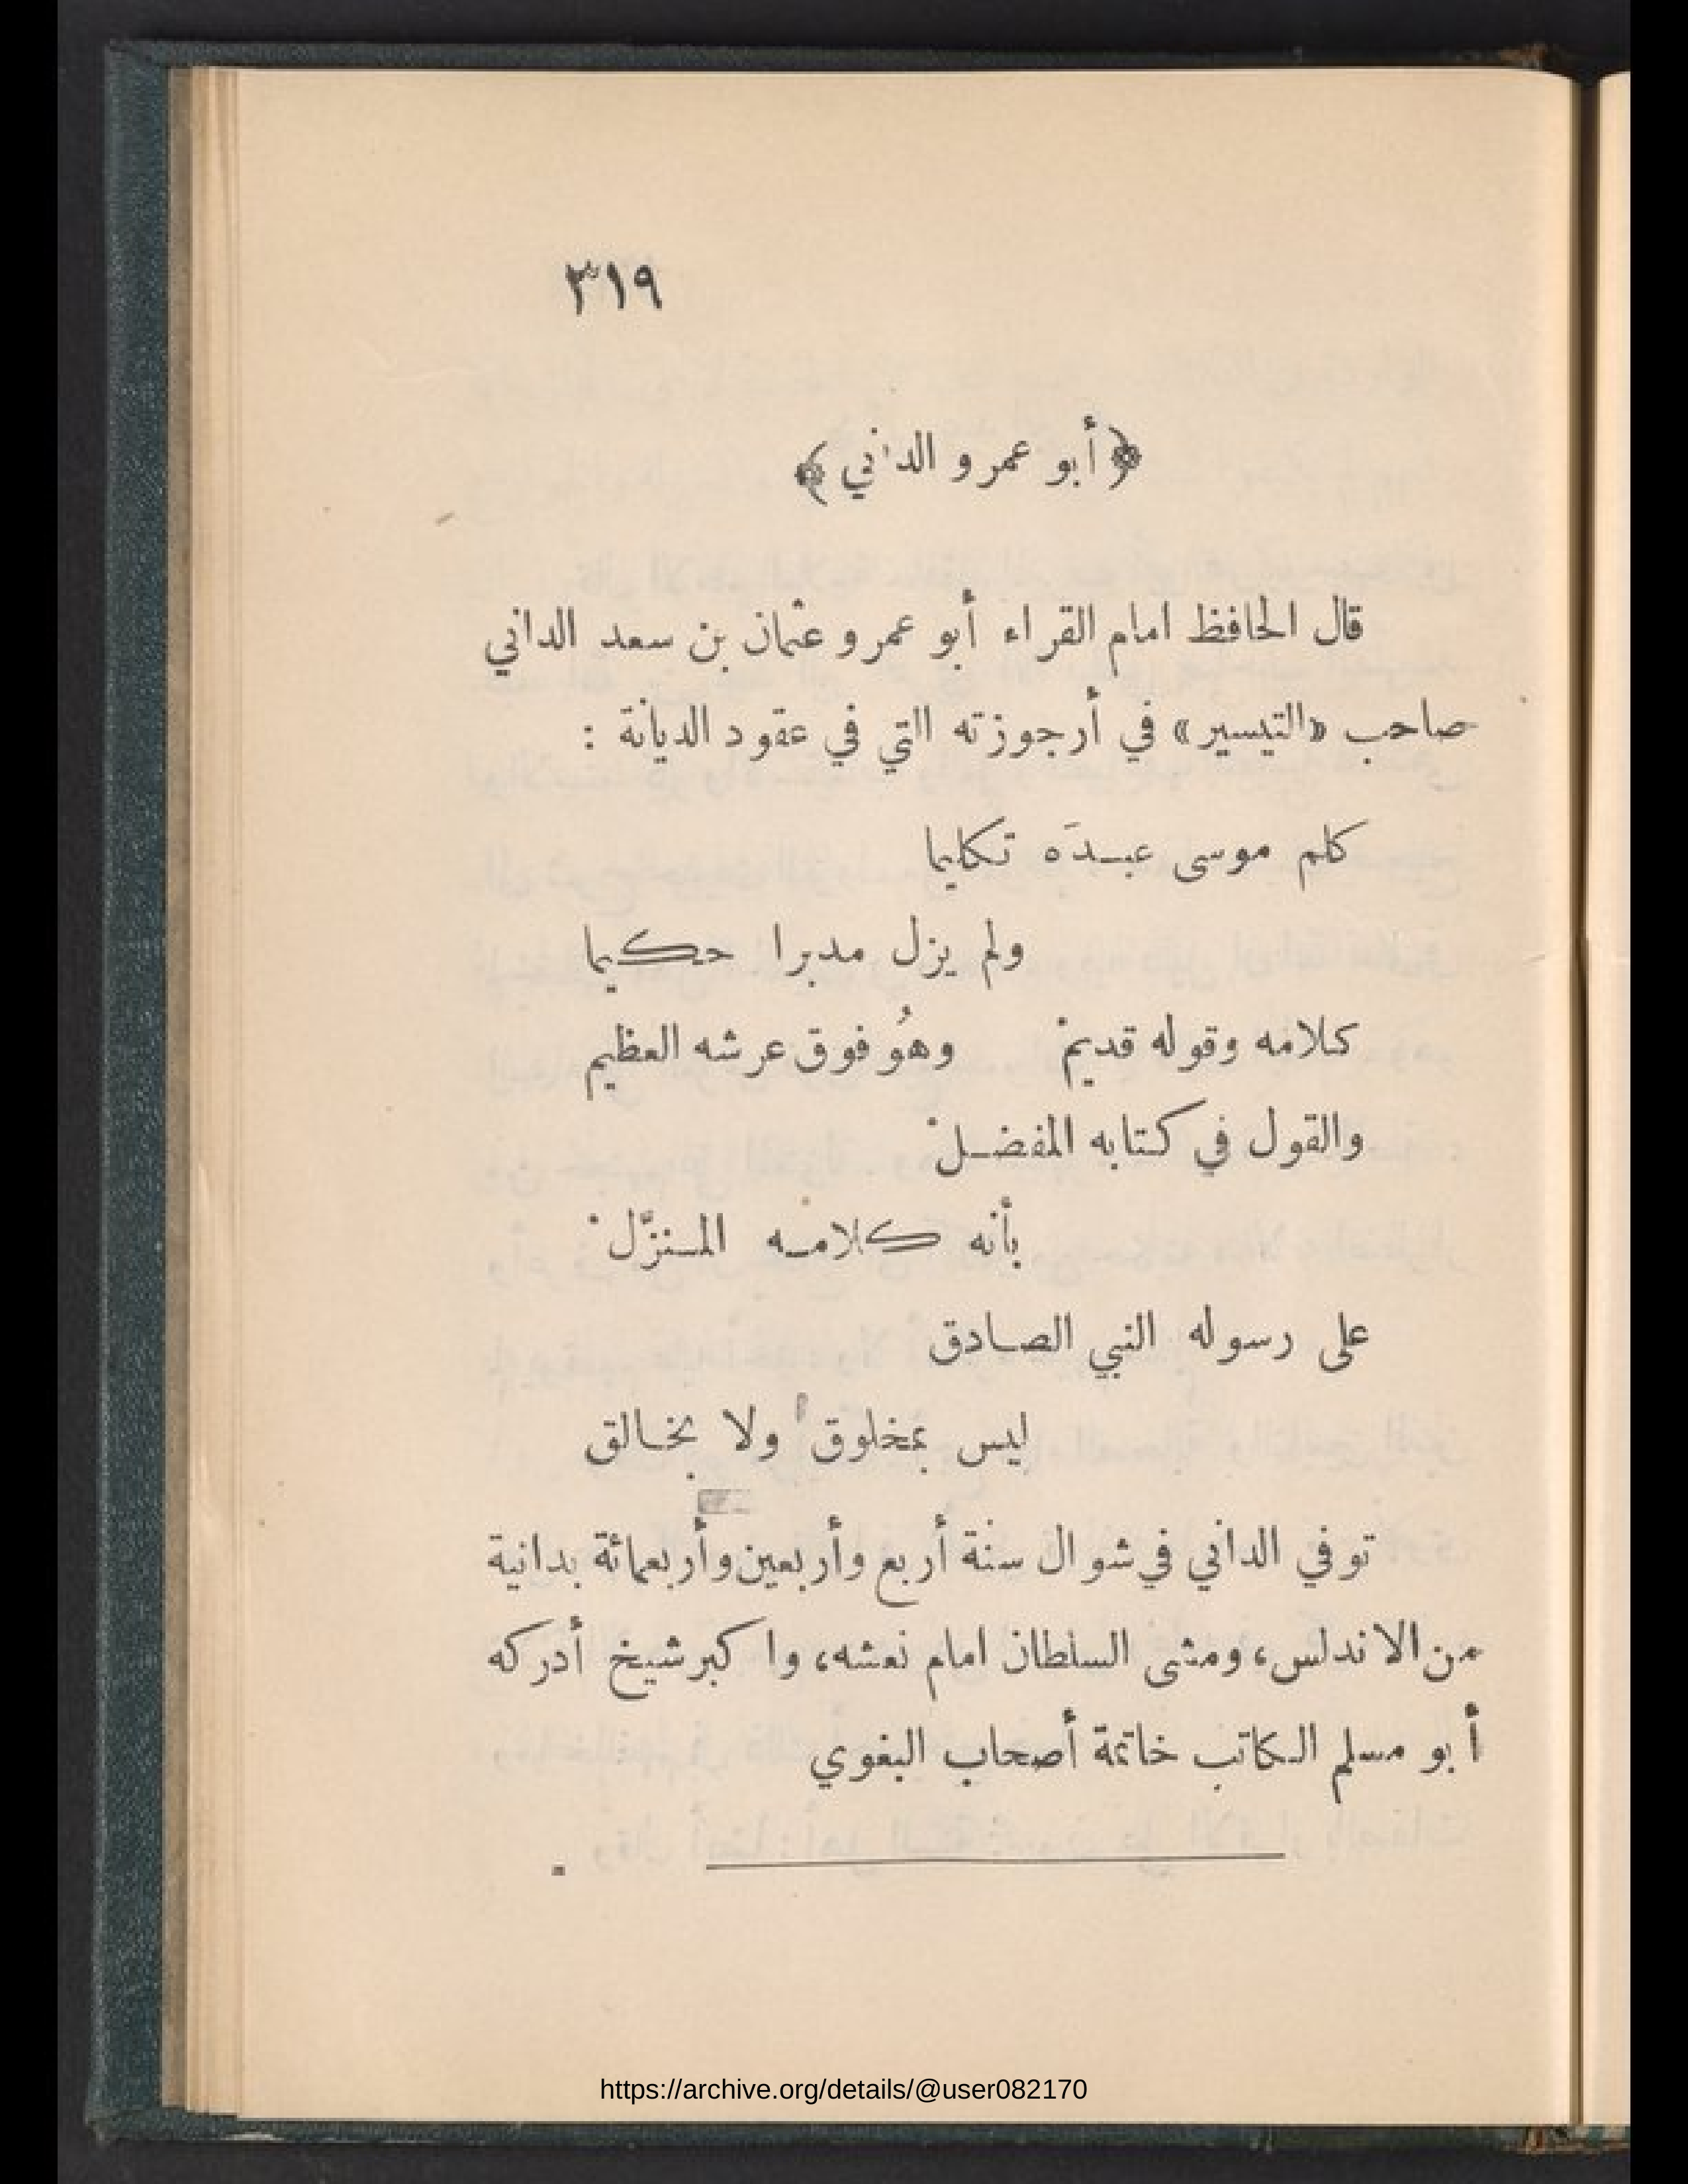 ٣١٩
﴿ أبو عمرو الداني ﴾
قال الحافظ امام القراء أبو عمرو عثمان بن سعد الداني
صاحب «التيسير» في أرجوزته التي في عقود الديانة :
كلم موسى عبدَه تكليما
ولم يزل مدبرا حكيما
كلامه وقوله قديمْ وهوُ فوق عرشه العظيم
والقول في كتابه المفضلْ
بأنه كلامه المنزَّلْ
على رسوله النبي الصادق
ليس بمخلوق ولا بخالق
توفي الداني في شوال سنة أربع وأربعين وأربعمائة بدانية
من الاندلس، ومشى السلطان امام نعشه، واكبر شيخ أدركه
أبو مسلم الكاتب خاتمة أصحاب البغوي
https://archive.org/details/@user082170